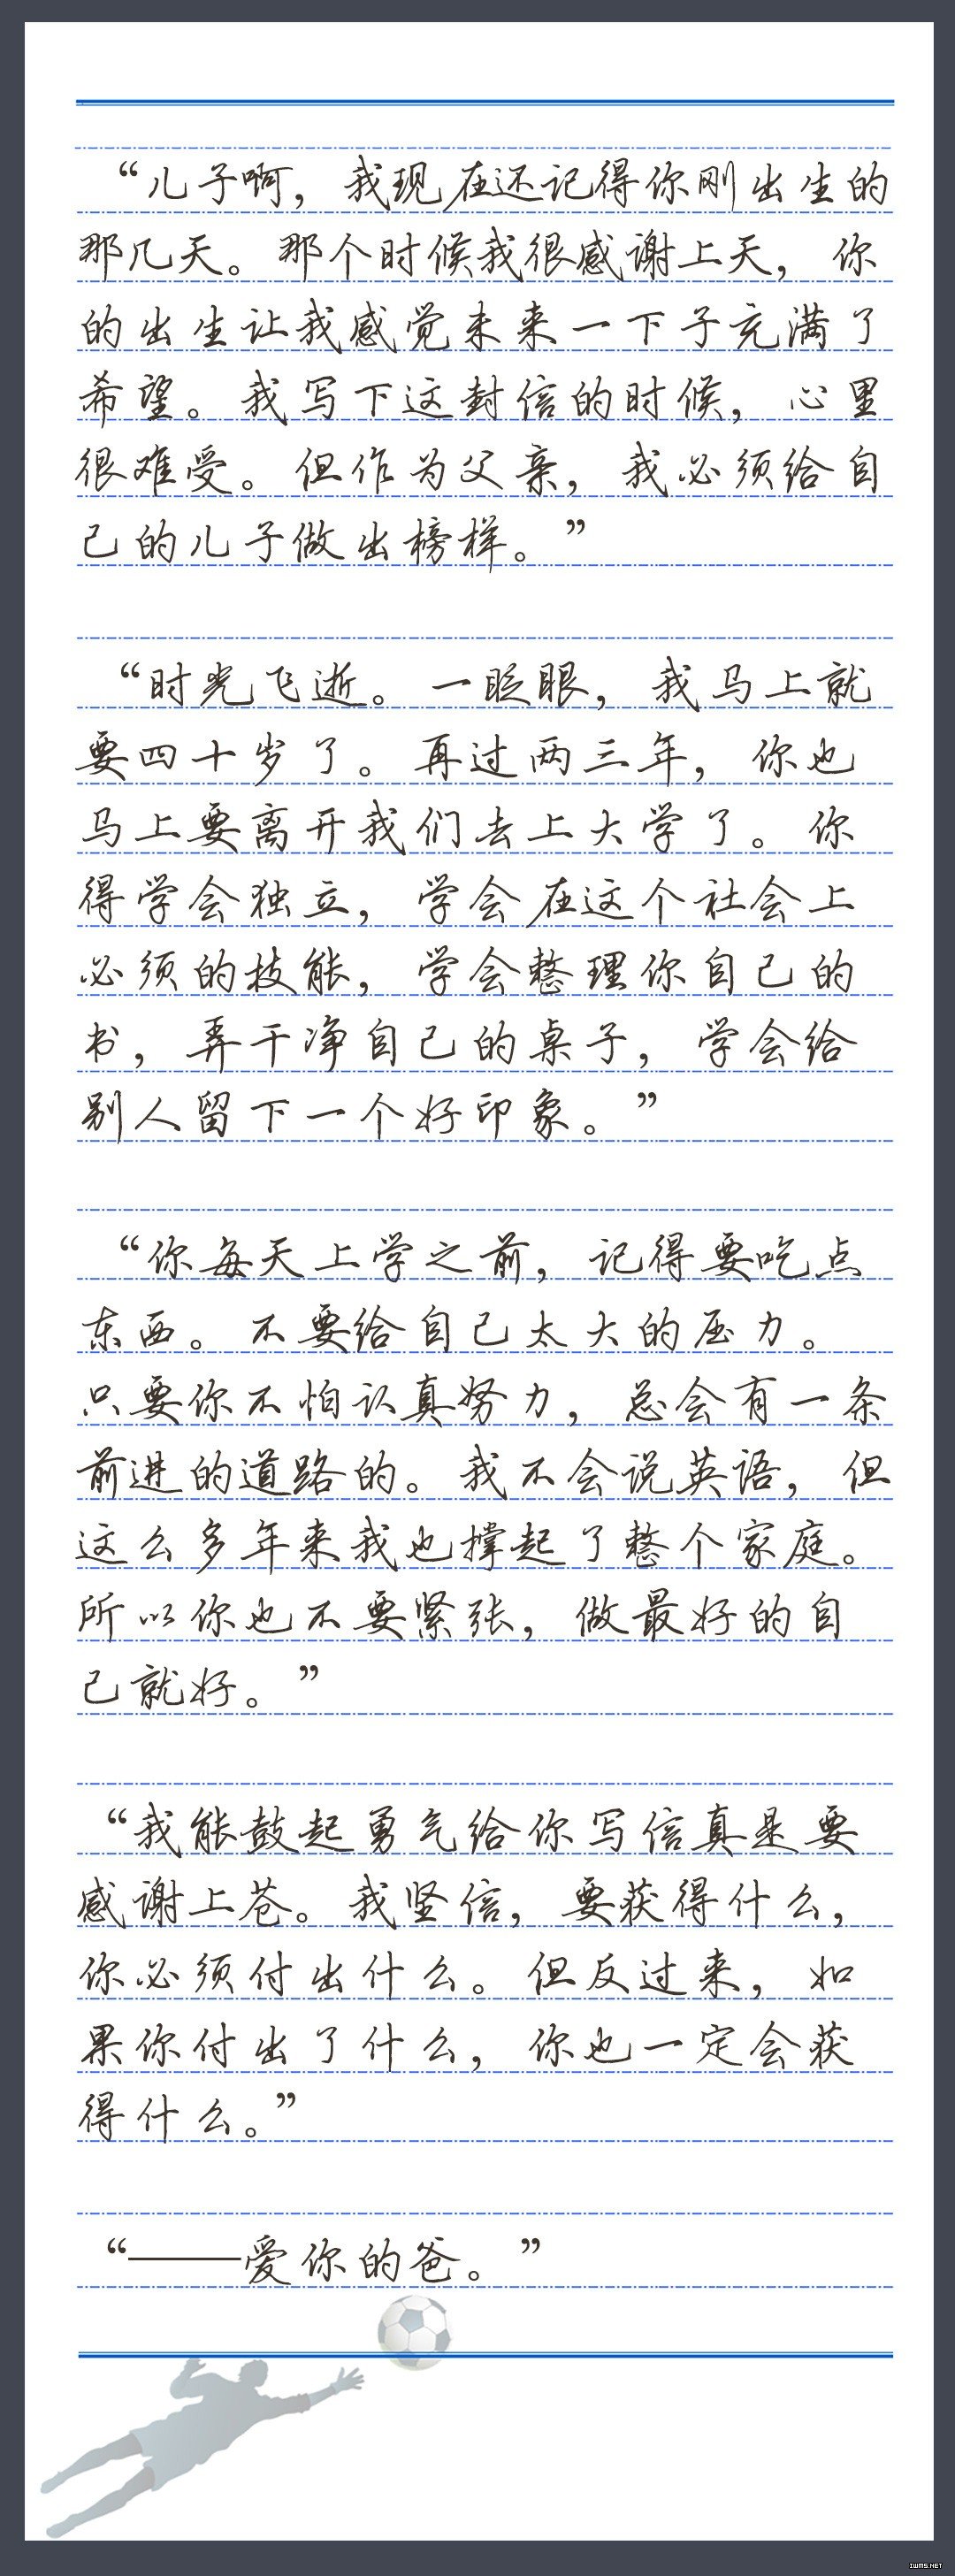 “儿子啊，我现在还记得你刚出生的
那几天。那个时候我很感谢上天，你
的出生让我感觉未来一下子充满了
希望。我写下这封信的时候，心里
很难受。但作为父亲，我必须给自
己的儿子做出榜样。”
“时光飞逝。一眨眼，我马上就
要四十岁了。再过两三年，你也
马上要离开我们去上大学了。你
得学会独立，学会在这个社会上
必须的技能，学会整理你自己的
书，弄干净自己的桌子，学会给
别人留下一个好印象。”
“你每天上学之前，记得要吃点
东西。不要给自己太大的压力。
只要你不怕认真努力，总会有一条
前进的道路的。我不会说英语，但
这么多年来我也撑起了整个家庭。
所以你也不要紧张，做最好的自
己就好。”
“我能鼓起勇气给你写信真是要
感谢上苍。我坚信，要获得什么，
你必须付出什么。但反过来，如
果你付出了什么，你也一定会获
得什么。”
“——爱你的爸。”
IWMS.NET